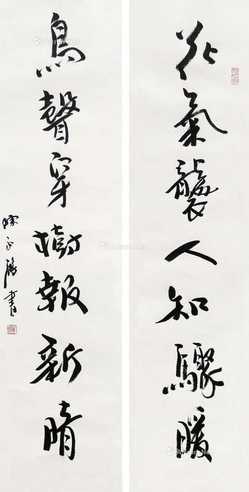 花氣襲人知驟暖
鳥聲穿樹報新晴